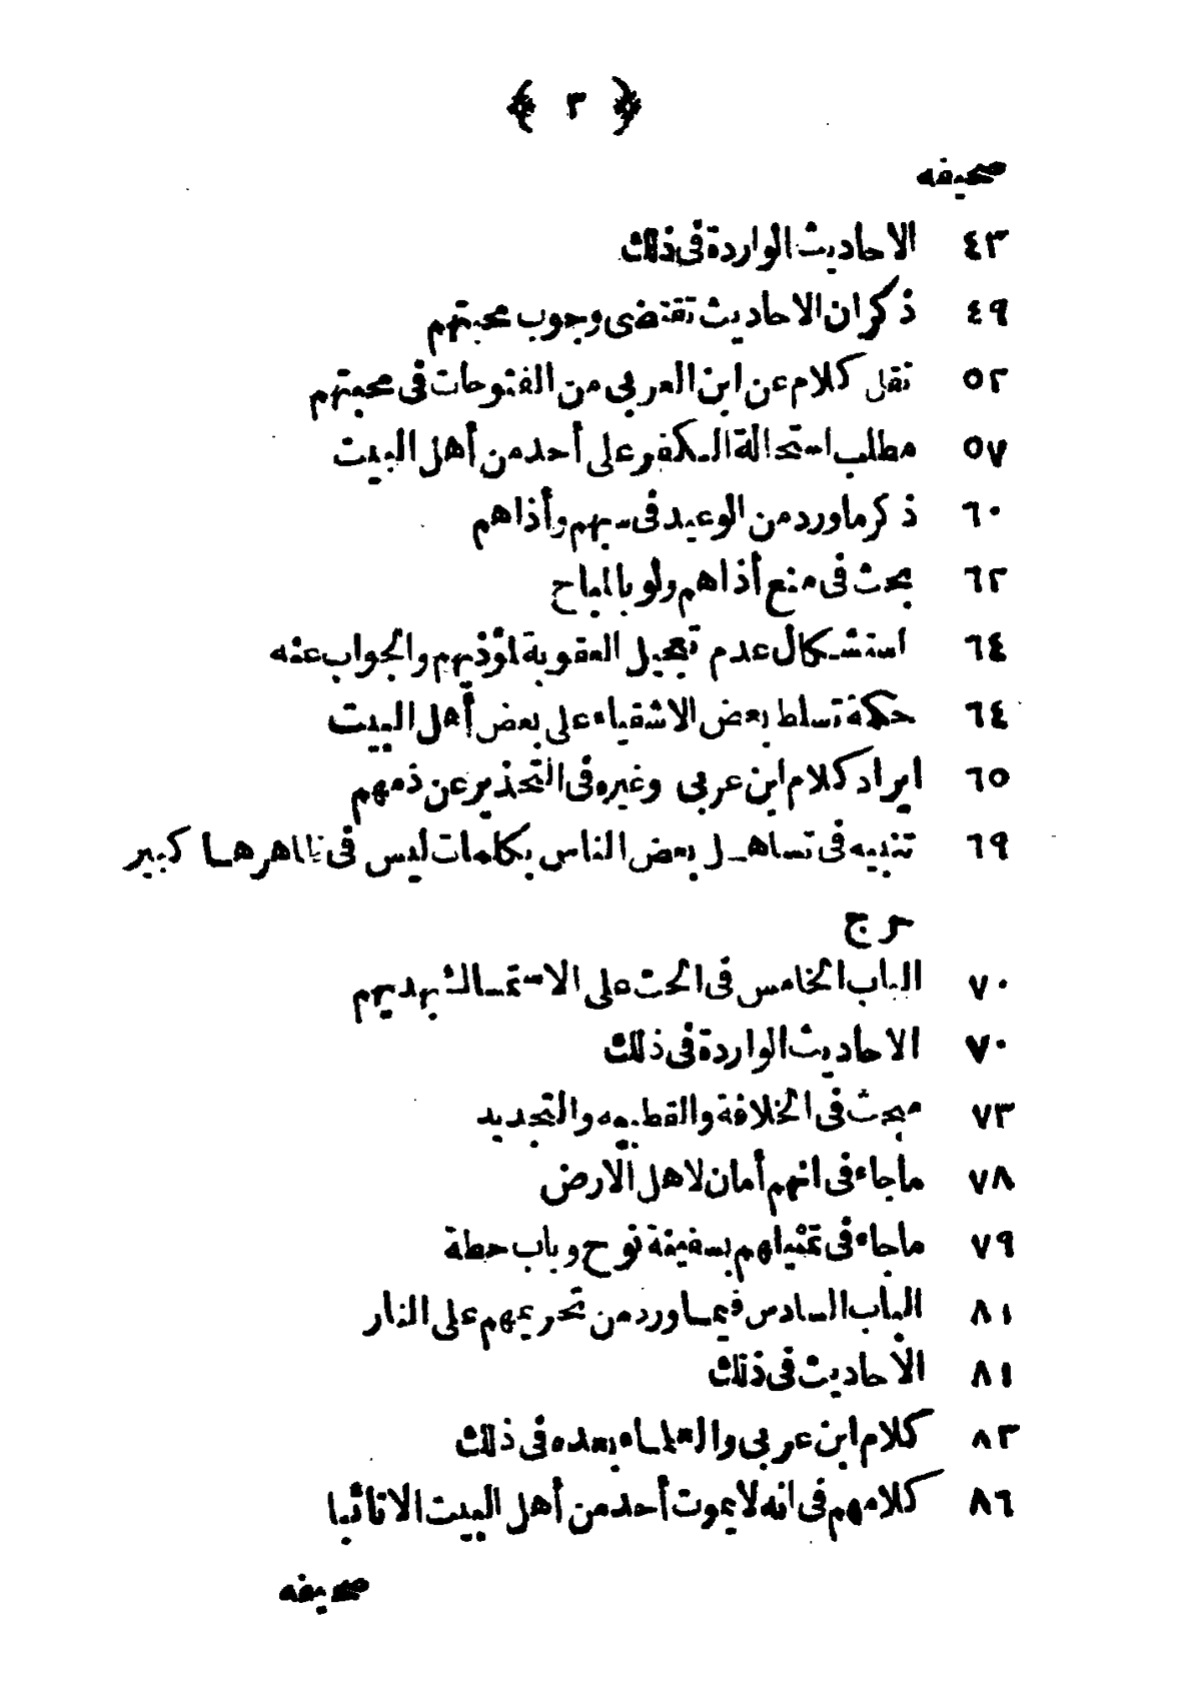 ﴿ ٣ ﴾
صحيفه
٤٣ الاحاديث الواردة فى ذلك
٤٩ ذكر ان الاحاديث تقتضى وجوب محبتهم
٥٢ نقل كلام عن ابن العربى من الفتوحات فى محبتهم
٥٧ مطلب استحالة الكفر على أحد من أهل البيت
٦٠ ذكر ماورد من الوعيد فى سبهم وأذاهم
٦٢ بحث فى منع أذاهم ولو بالمباح
٦٤ استشكال عدم تعجيل العقوبة لمؤذيهم والجواب عنه
٦٤ حكمة تسلط بعض الاشقياء على بعض أهل البيت
٦٥ ايراد كلام ابن عربى وغيره فى التحذير عن ذمهم
٦٩ تنبيه فى تساهل بعض الناس بكلمات ليس فى ظاهرها كبير
حرج
٧٠ الباب الخامس فى الحث على الاستمساك بهديهم
٧٠ الاحاديث الواردة فى ذلك
٧٣ مبحث فى الخلافة والقطبيه والتجديد
٧٨ ماجاء فى انهم أمان لاهل الارض
٧٩ ماجاء فى تمثيلهم بسفينة نوح وباب حطة
٨١ الباب السادس فيما ورد من تحريمهم على النار
٨١ الأحاديث فى ذلك
٨٣ كلام ابن عربى والعلماء بعده فى ذلك
٨٦ كلامهم فى انه لا يموت أحد من أهل البيت الا تائبا
صحيفه